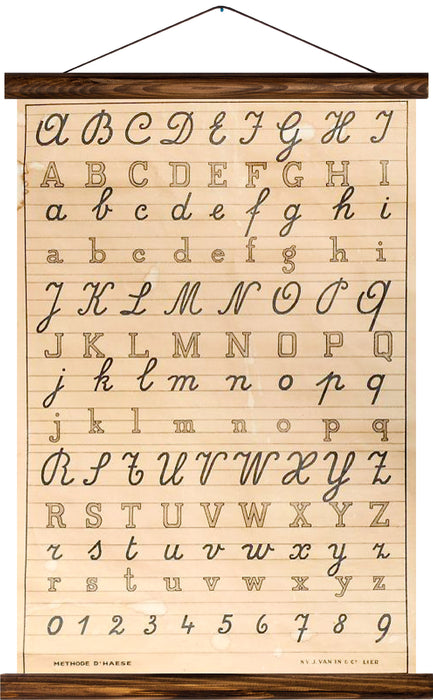 A B C D E F G H I
A B C D E F G H I
a b c d e f g h i
a b c d e f g h i
J K L M N O P Q
J K L M N O P Q
j k l m n o p q
j k l m n o p q
R S T U V W X Y Z
R S T U V W X Y Z
r s t u v w x y z
r s t u v w x y z
0 1 2 3 4 5 6 7 8 9
METHODE D'HAESE N.V. J. VAN IN & Cº LIER